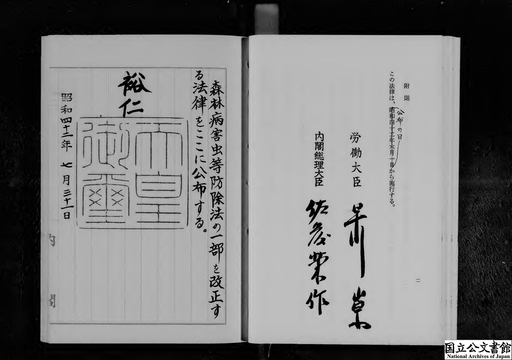 附則
この法律は、公布の日から施行する。
労働大臣 早川崇
内閣総理大臣 佐藤榮作
二
森林病害虫等防除法の一部を改正す
る法律をここに公布する。
裕仁
天皇
御璽
昭和四十二年七月三十一日
内閣
国立公文書館
National Archives of Japan